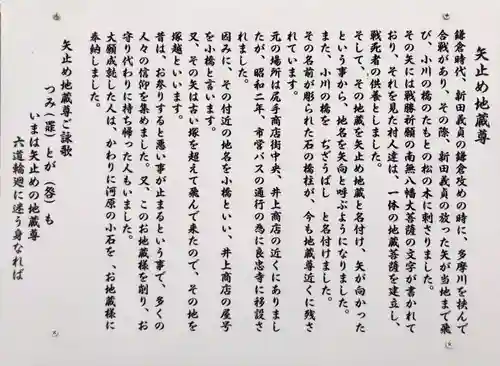 矢止め地蔵尊
鎌倉時代、新田義貞の鎌倉攻めの時に、多摩川を挟んで
合戦があり、その際、新田義貞の放った矢が当地まで飛
び、小川の橋のたもとの松の木に刺さりました。
その矢には戦勝祈願の南無八幡大菩薩の文字が書かれて
おり、それを見た村人達は、一体の地蔵菩薩を建立し、
戦死者の供養としました。
そして、その地蔵を矢止め地蔵と名付け、矢が向かった
という事から、地名を矢向と呼ぶようになりました。
また、小川の橋を ぢざうばし と名付けました。
その名前が彫られた石の橋柱が、今も地蔵尊近くに残さ
れています。
元の場所は尻手商店街中央、井上商店の近くにありまし
たが、昭和二年、市営バスの通行の為に良忠寺に移設さ
れました。
因みに、その付近の地名を小橋といい、井上商店の屋号
を小橋と言います。
又、その矢は古い塚を超えて飛んで来たので、その地を
塚越といいます。
昔は、お参りすると悪い事が止まるという事で、多くの
人々の信仰を集めました。又、このお地蔵様を削り、お
守り代わりに持ち帰った人もいました。
大願成就した人は、かわりに河原の小石を 、お地蔵様に
奉納しました。
矢止め地蔵尊ご詠歌
つみ(罪)とが(咎)も
いまは矢止めの地蔵尊
六道輪廻に迷う身なれば